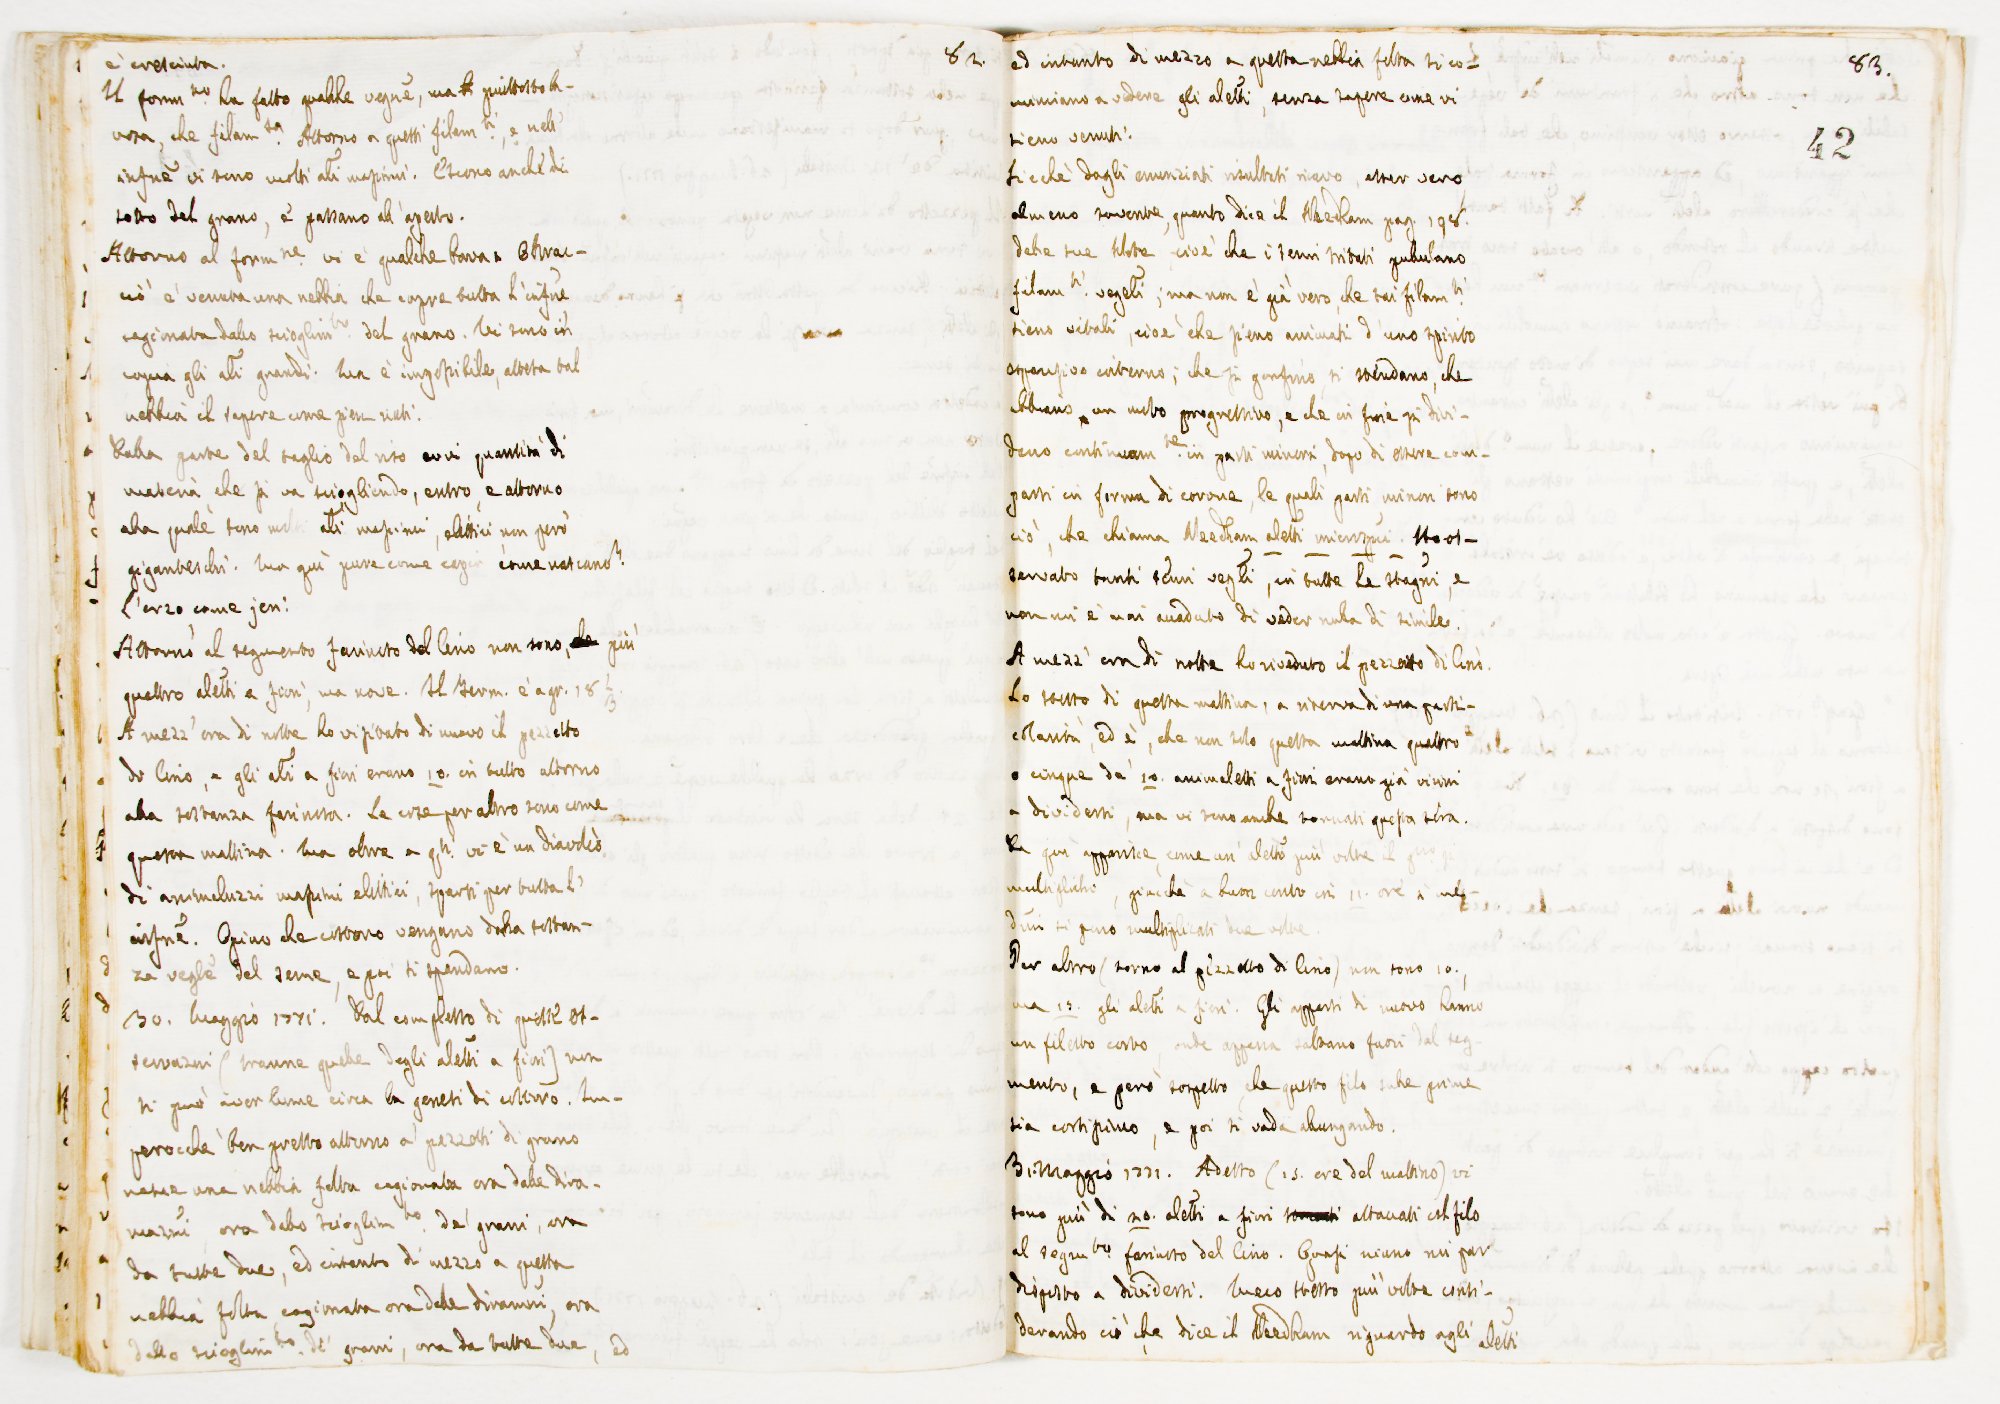 82.
è cresciuta.
Il form.no ha fatto qualche vegñe, ma piuttosto b-
ava, che filam.ta. Attorno a questi filam.ti, e nell'
infñe vi sono molti ãli massimi. Escono anche di
sotto del grano, e passano all'aperto.
Attorno al form.ne vi è qualche bava.
ciò è venuta una nebbia che copre tutta l'infñe
cagionata dallo scioglim.to del grano. Vi sono in
copia gli ãli grandi. Ma è impossibile, attesa tal
nebbia il sapere come sien nati.
Dalla parte del taglio del riso evvi quantità di
materia che si va sciogliendo, entro, e attorno
alla quale sono molti ãli massimi, elittici, non però
giganteschi. Ma qui pure come come nascano?
L'orzo come jeri.
Attorno al segmento farinoso del lino non sono, più
quattro aletti a fiori, ma nove. Il Term. è a gr. 18 1/3.
A mezz'ora di notte ho visitato di nuovo il pezzetto
di lino, e gli ãli a fiori erano 10. in tutto attorno
alla sostanza farinosa. Le cose per altro sono come
questa mattina. Ma oltre a q.ti vi è un diavolìo
di animaluzzi massimi elittici, sparsi per tutta l'
infñe. Opino che costoro vengano dalla sostan-
za vegle del seme, e poi si spandano.
30. Maggio 1771. Dal complesso di queste os-
servazñi (tranne quelle degli aletti a fiori) non
si può aver lume circa la genesi di costoro. Im-
perocchè ben presto attorno a' pezzetti di grano
nasce una nebbia folta cagionata ora dalle dira-
mazñi, ora dallo scioglim.to de' grani, ora
da tutte due, ed intanto di mezzo a questa
nebbia folta cagionata ora dalle diramazñi, ora
dallo scioglim.to de' grani, ora da tutte due, ed
83.
42
ed intanto di mezzo a questa nebbia folta si co-
minciano a vedere gli aletti, senza sapere come vi
sieno venuti.
Sicchè dagli enunziati risultati ricavo, esser vero
almeno sovente, quanto dice il Needham pag. 198.
delle sue Note, cioè che i semi tritati pullulano
filam.ti vegeti; ma non è già vero, che tai filam.ti
sieno vitali, cioè che sieno animati d'uno spirito
espansivo interno; che si gonfino, si stendano, che
abbiano un moto progressivo, e che in fine si divi-
dano continuam.te in parti minori, dopo di essere com-
parsi in forma di corone, le quali parti minori sono
ciò, che chiama Needham aletti microspci. Ho os-
servato tanti semi vegli, in tutte le stagñi, e
non mi è mai accaduto di veder nulla di simile.
A mezz'ora di notte ho riveduto il pezzetto di lino.
Lo stesso di questa mattina, a riserva di una parti-
colarità, ed è, che non solo questa mattina quattro
o cinque de' 10. animaletti a fiori erano già vicini
a dividersi, ma vi sono anche tornati questa sera.
Da qui apparisce, come un aletto più volte il
moltiplichi, giacchè a buon conto in 11. ore i me-
dmi si sono moltiplicati due volte.
Per altro (torno al pezzetto di lino) non sono 10.,
ma 15. gli aletti a fiori. Gli apparsi di nuovo hanno
un filetto corto, onde appena saltano fuori dal seg-
mento, e però sospetto, che questo filo sulle prime
sia cortissimo, e poi si vada allungando.
31. Maggio 1771. Adesso (15. ore del mattino) vi
sono più di 20. aletti a fiori attaccati col filo
al segm.to farinoso del lino. Quasi niuno mi par
disposto a dividersi. Meco stesso più volte consi-
derando ciò, che dice il Needham riguardo agli aletti